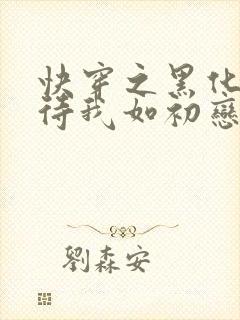 快穿之黑化
待我如初戀
劉森安